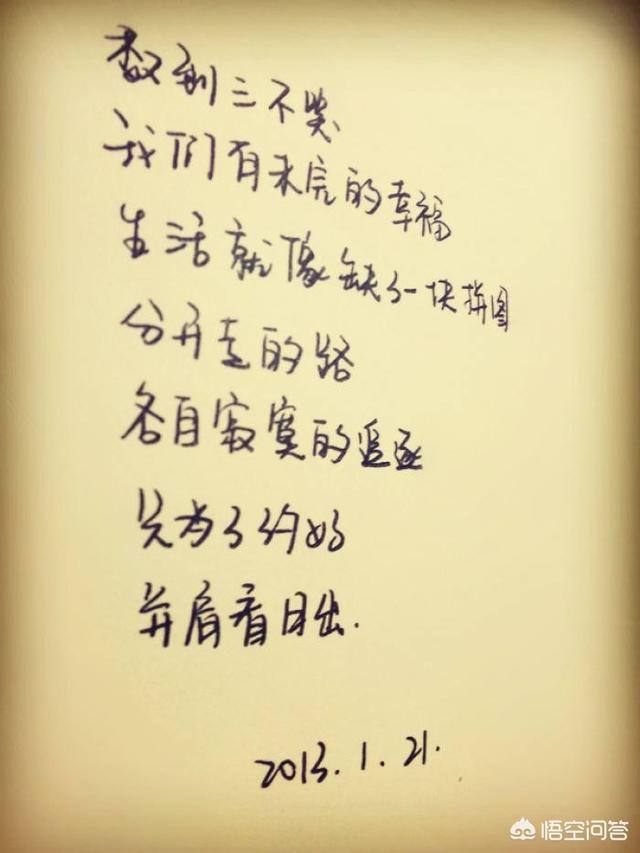 数到三不哭
我们有未完的幸福
生活就像缺了一块拼图
分开走的路
各自寂寞的追逐
只为了约好
并肩看日出.
2013.1.21.
悟空问答